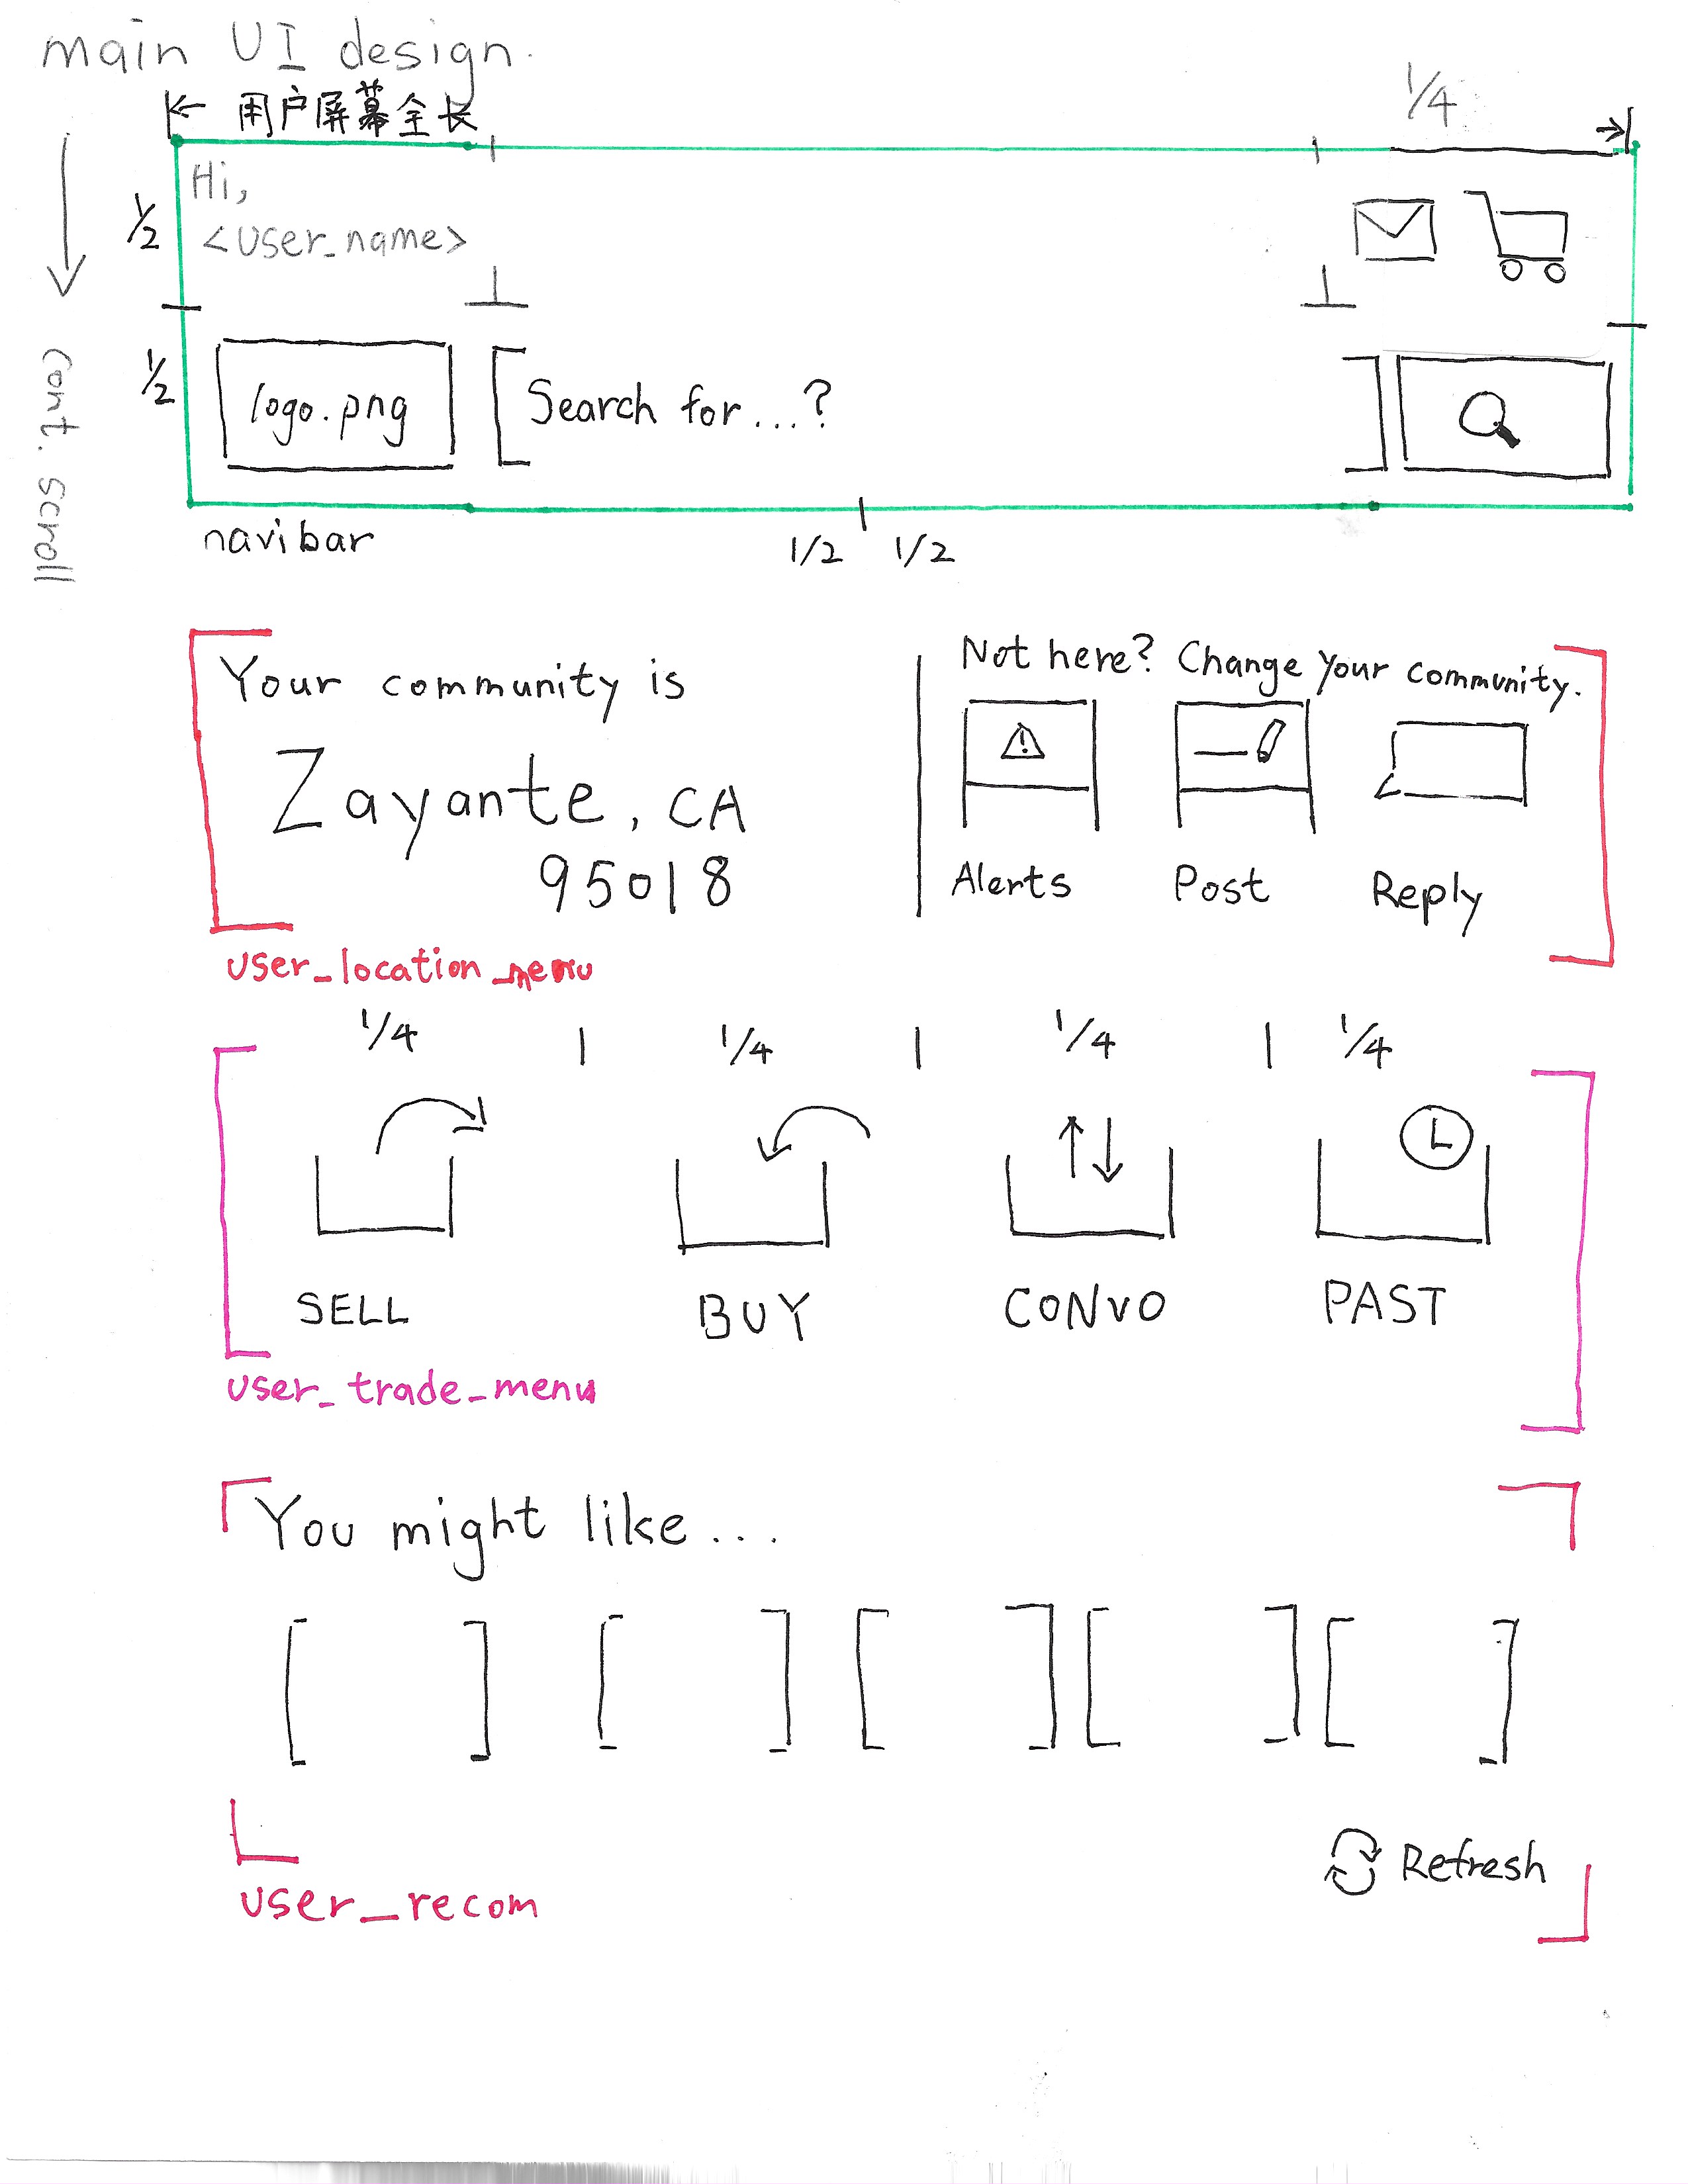 main UI design.
用户屏幕全长
1/4
Hi,
<user_name>
1/2
1/2
cont. scroll
logo.png
Search for...?
navibar
1/2 1/2
Your community is
Zayante, CA
95018
Not here? Change your community.
Alerts Post Reply
user_location_menu
1/4 | 1/4 | 1/4 | 1/4
SELL BUY CONVO PAST
user_trade_menu
You might like...
Refresh
user_recom